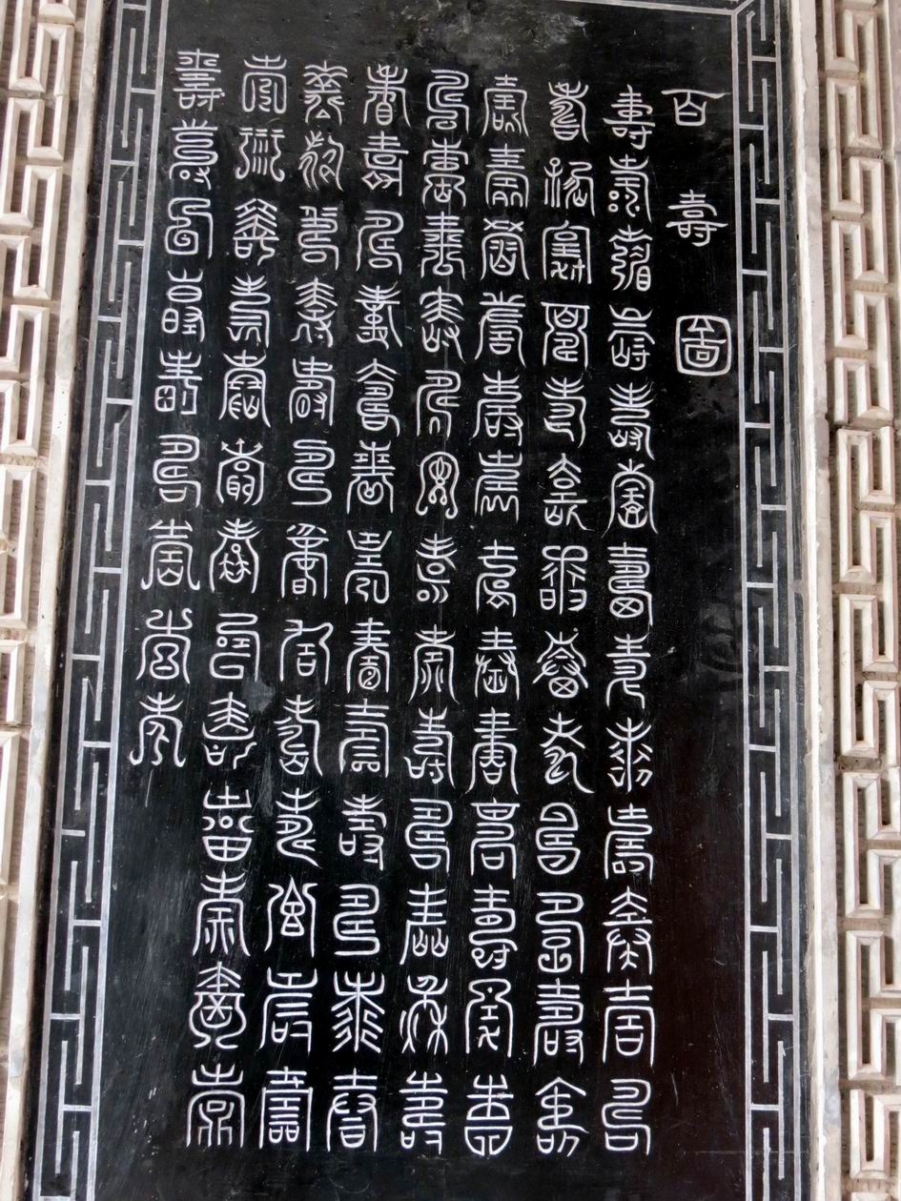 百壽圖
壽壽壽壽壽壽壽壽壽壽壽壽壽
壽壽壽壽壽壽壽壽壽壽壽壽壽
壽壽壽壽壽壽壽壽壽壽壽壽壽
壽壽壽壽壽壽壽壽壽壽壽壽壽
壽壽壽壽壽壽壽壽壽壽壽壽壽
壽壽壽壽壽壽壽壽壽壽壽壽壽
壽壽壽壽壽壽壽壽壽壽壽壽壽
壽壽壽壽壽壽壽壽壽